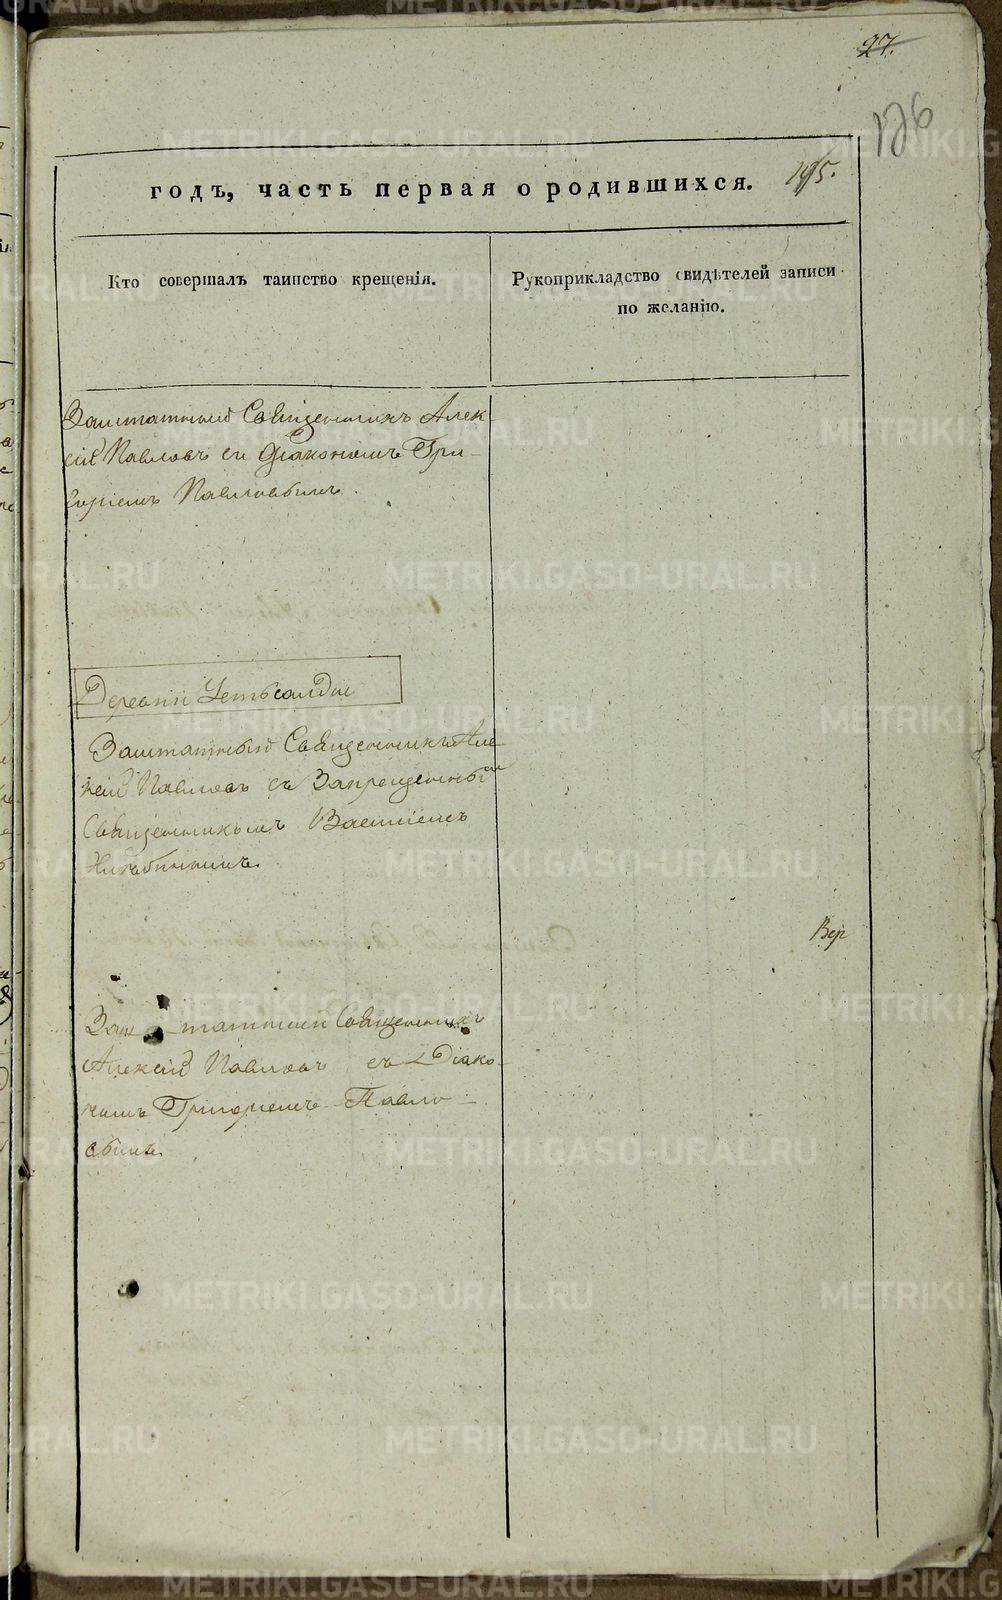 27.
126
195.
годъ, часть первая о родившихся.
Кто совершалъ таинство крещенія.
Рукоприкладство свидѣтелей записи
по желанію.
Заштатный Священникъ Алек-
сій Павловъ съ Діакономъ Гри-
горіемъ Павловымъ.
Деревни Устьсалды
Заштатный Священникъ Але
ксій Павловъ съ Запрещеннымъ
Священникомъ Василіемъ
Заштатный Священникъ
Алексій Павловъ съ Діако-
номъ Григоріемъ Павло-
вымъ.
Вер
METRIKI.GASO-URAL.RU